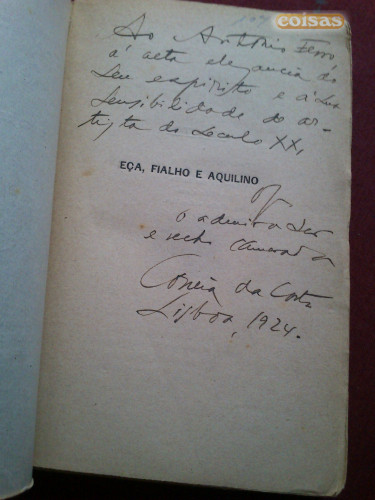 coisas
Ao António Ferro
á alta elegancia do
seu espirito e á sua
sensibilidade de ar-
tista do seculo XX,
EÇA, FIALHO E AQUILINO
o admirador
e velho camarada
Correia da Costa
Lisboa, 1924.